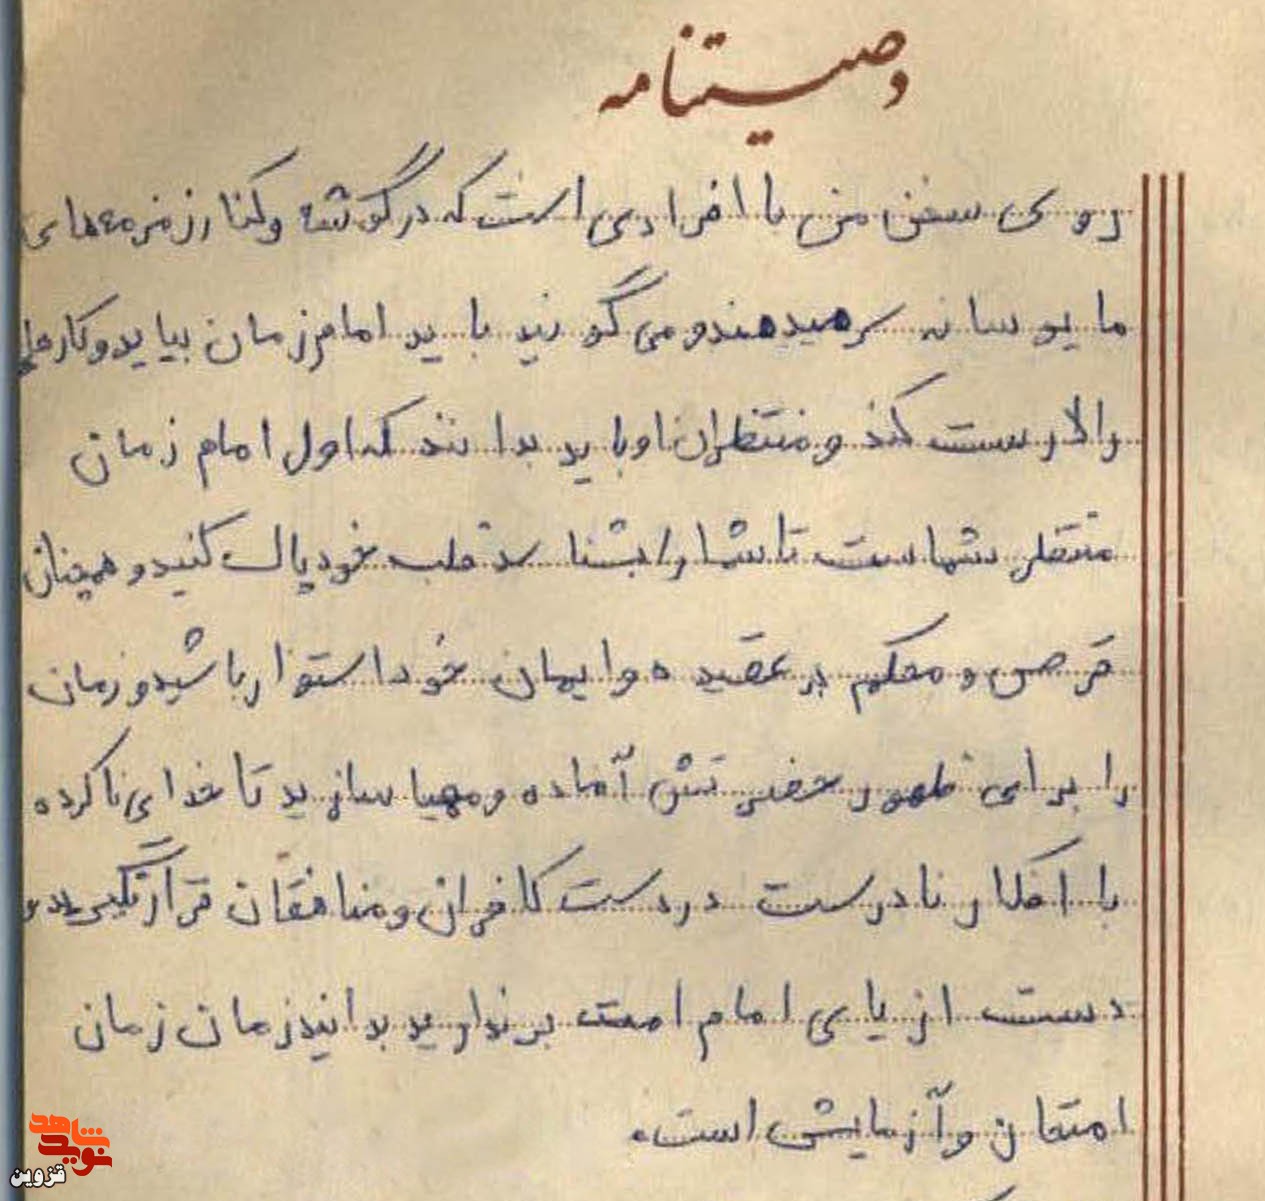 وصیتنامه
روی سخن من با افرادی است که در گوشه و کنار زمزمه‌های
مایوسانه سر میدهند و می گویند باید امام زمان بیاید و کارها
را درست کند و منتظران او باید بدانند که اول امام زمان
منتظر شماست تا شما را بشناسد قلب خود پاک کنید و همچنان
قرص و محکم بر عقیده و ایمان خود استوار باشید و زمان
را برای ظهور حضرتش آماده و مهیا سازید تا خدای ناکرده
با افکار نادرست در دست کافران و منافقان قرار نگیرید و
دست از یاری امام امت برندارید بدانید زمان زمان
امتحان و آزمایش است.
نوید شاهد
قزوین